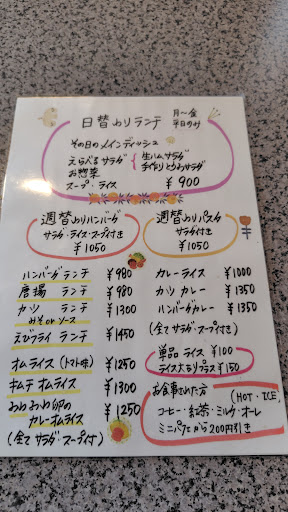 日替わりランチ 月〜金 平日のみ
その日のメインディッシュ
えらべるサラダ { 生ハムサラダ
お惣菜 手作りとうふサラダ
スープ・ライス ¥900
週替わりハンバーグ
サラダ・ライス・スープ付き
¥1050
週替わりパスタ
サラダ付き
¥1050
ハンバーグ ランチ ¥980
唐揚 ランチ ¥980
カツ ランチ ¥1300
みそ or ソース
えびフライ ランチ ¥1450
オムライス (トマト味) ¥1250
キムチ オムライス ¥1300
ふわふわ卵の
カレーオムライス ¥1250
(全て サラダ・スープ付)
カレーライス ¥1000
カツ カレー ¥1350
ハンバーグカレー ¥1350
(全て サラダ・スープ付き)
単品 ライス ¥100
ライス大もりプラス ¥150
お食事された方
(HOT・ICE)
コーヒー・紅茶・ミルク・オーレ
ミニパフェから200円引き